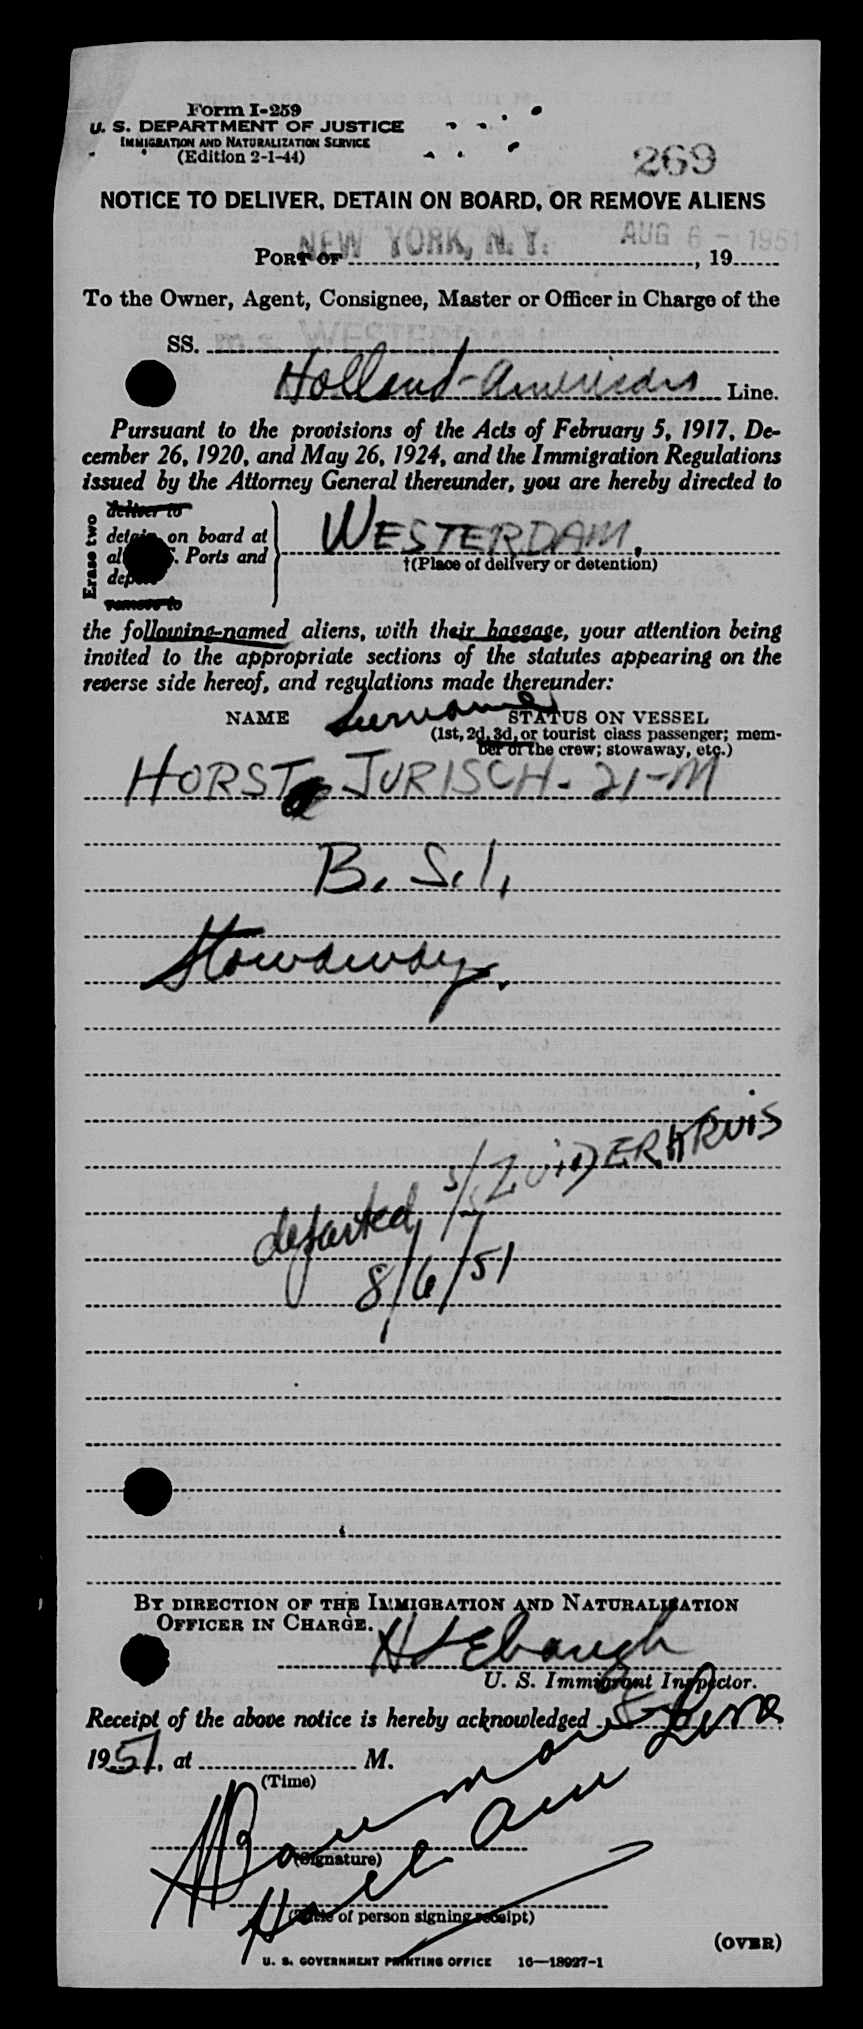 Form I-259
U. S. DEPARTMENT OF JUSTICE
IMMIGRATION AND NATURALIZATION SERVICE
(Edition 2-1-44)
269
NOTICE TO DELIVER, DETAIN ON BOARD, OR REMOVE ALIENS
PORT OF NEW YORK, N.Y. AUG 6 - 1951, 19
To the Owner, Agent, Consignee, Master or Officer in Charge of the
SS. m.s. WESTERDAM
Holland-American Line.
Pursuant to the provisions of the Acts of February 5, 1917, De-
cember 26, 1920, and May 26, 1924, and the Immigration Regulations
issued by the Attorney General thereunder, you are hereby directed to
Erase two
deliver to
detain on board at
all U.S. Ports and
deport
remove to
WESTERDAM.
†(Place of delivery or detention)
the following-named aliens, with their baggage, your attention being
invited to the appropriate sections of the statutes appearing on the
reverse side hereof, and regulations made thereunder:
NAME Surname STATUS ON VESSEL
(1st, 2d, 3d, or tourist class passenger; mem-
ber of the crew; stowaway, etc.)
HORST JURISCH - 21-M
B. S. I.
Stowaway.
departed s/s ZUIDERKRUIS
8/6/51
BY DIRECTION OF THE IMMIGRATION AND NATURALIZATION
OFFICER IN CHARGE.
U. S. Immigrant Inspector.
Receipt of the above notice is hereby acknowledged
1951, at M.
(Time)
Holl Am Line
(Signature)
(Title of person signing receipt)
(OVER)
U. S. GOVERNMENT PRINTING OFFICE 16—18927-1